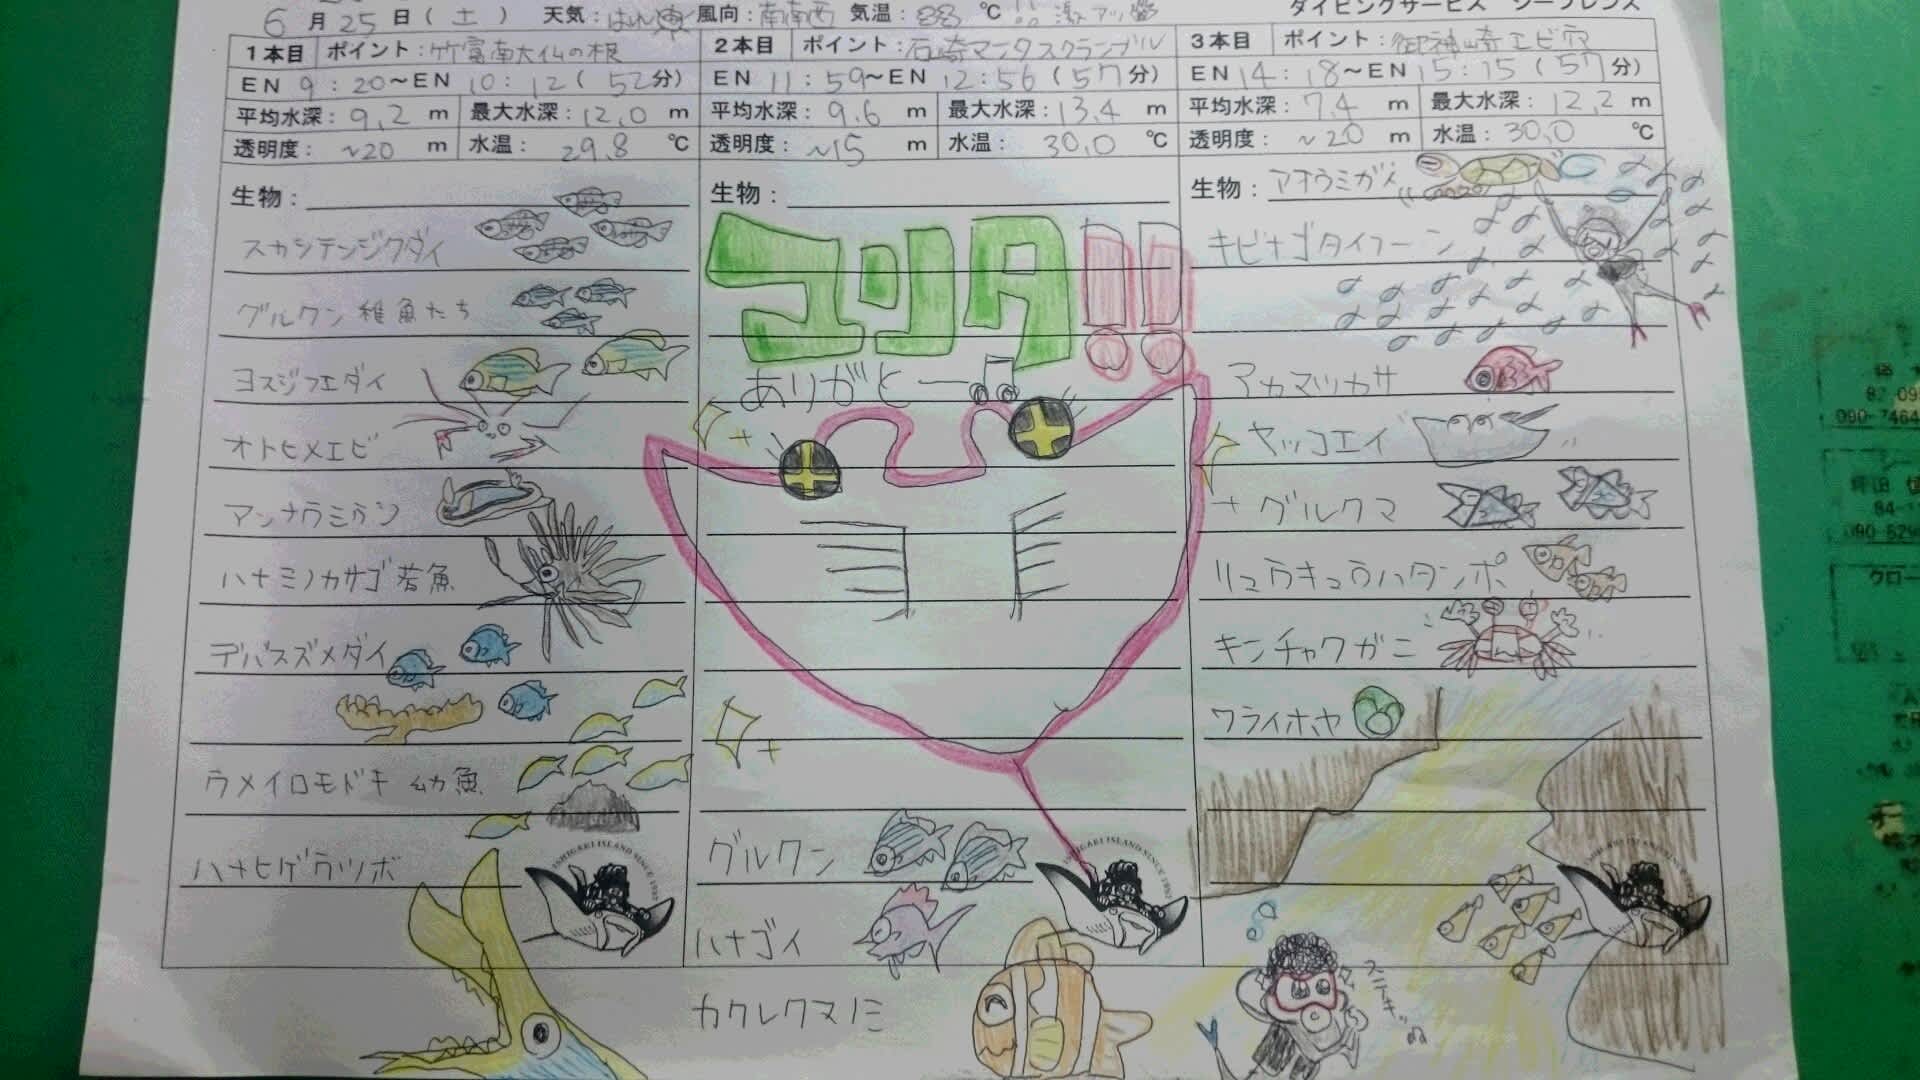 6月25日(土) 天気: 風向:南南西 気温: ℃ 激アツ ダイビングサービス シーフレンズ
1本目 ポイント:竹富南大仏の根
EN 9:20~EN 10:12(52分)
平均水深:9.2m 最大水深:12.0m
透明度:~20m 水温:29.8℃
生物:
スカシテンジクダイ
グルクン稚魚たち
ヨスジフエダイ
オトヒメエビ
アンナウミウシ
ハナミノカサゴ若魚
デバスズメダイ
ウメイロモドキ幼魚
ハナヒゲウツボ
ISHIGAKI ISLAND SINCE
2本目 ポイント:石崎マンタスクランブル
EN 11:59~EN 12:56(57分)
平均水深:9.6m 最大水深:13.4m
透明度:~15m 水温:30.0℃
生物:
コンタ!!
ありがとー
グルクン
ハナゴイ
カクレクマノミ
ISHIGAKI ISLAND SINCE
3本目 ポイント:御神崎エビ穴
EN 14:18~EN 15:15(57分)
平均水深:7.4m 最大水深:12.2m
透明度:~20m 水温:30.0℃
生物:アオウミガメ
キビナゴタイフーン
アカマツカサ
ヤッコエイ
グルクマ
リュウキュウハタンポ
キンチャクガニ
ワライホヤ
ISHIGAKI ISLAND SINCE
ステキ